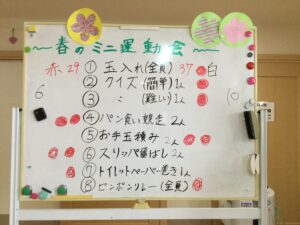 〜春のミニ運動会〜
赤 29 ① 玉入れ(全員) 37 白
② クイズ(簡単)1人
6 ③ 〃 (難しい)1人 10
④ パン食い競走 2人
⑤ お手玉積み 2人
⑥ スリッパ飛ばし 2人
⑦ トイレットペーパー巻き 1人
⑧ ピンポンリレー(全員)